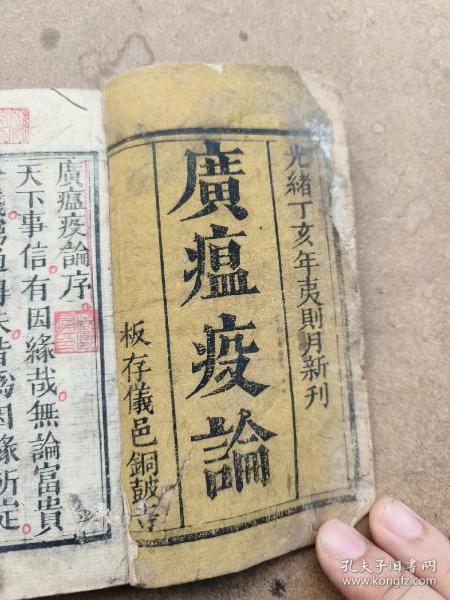 光緒丁亥年夷則月新刊
廣瘟疫論
板存儀邑銅鼓寺
廣瘟疫論序
天下事信有因緣哉無論富貴
孔夫子旧书网
www.kongfz.com